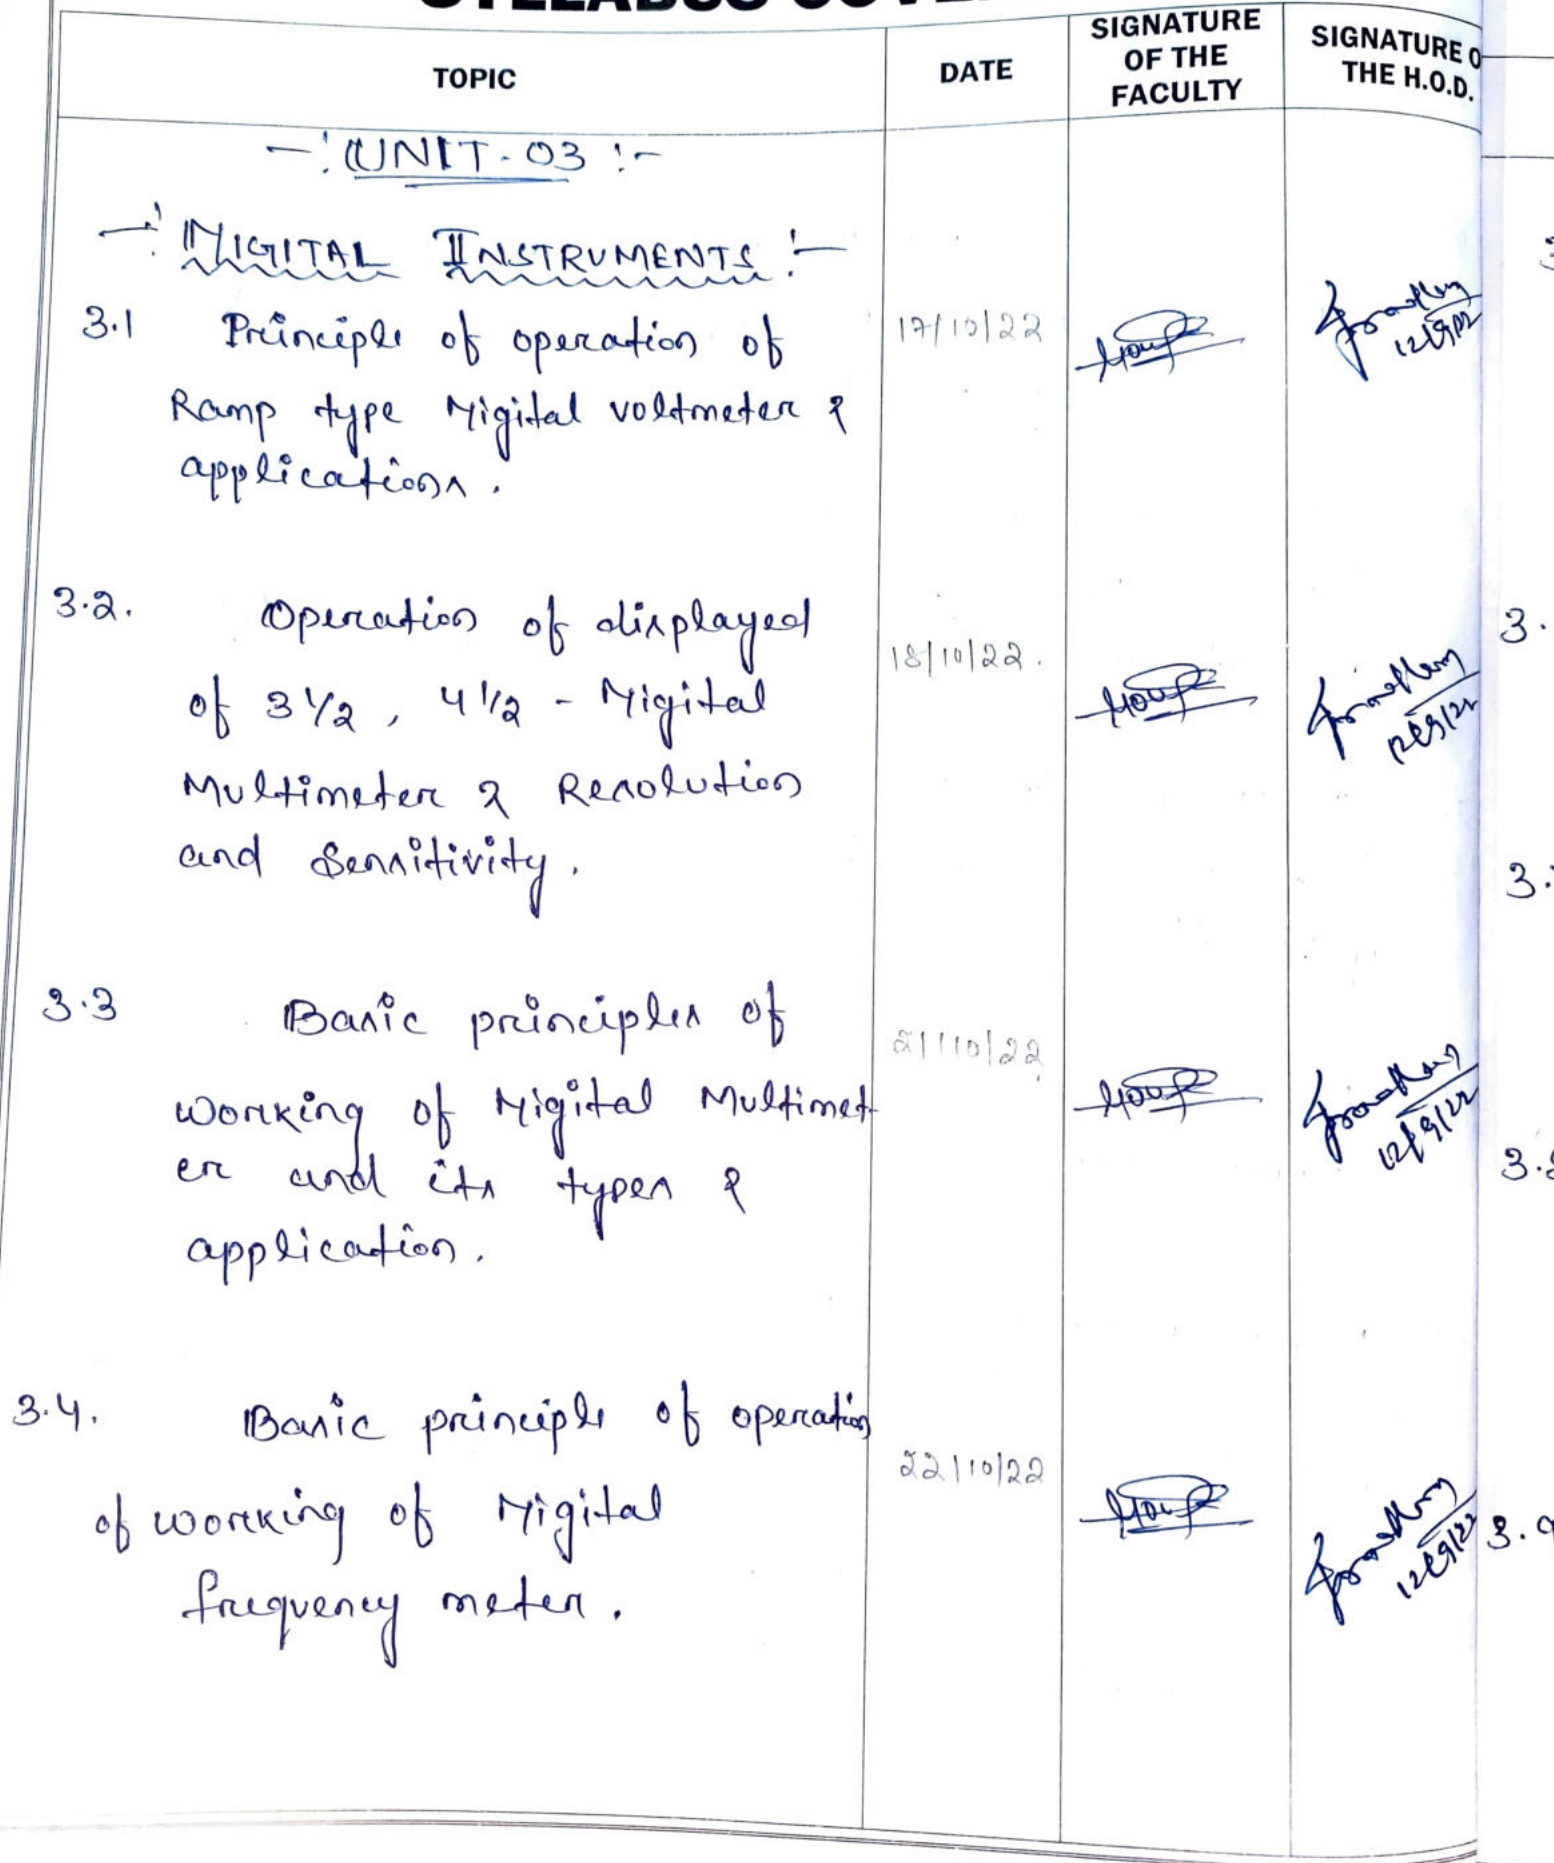 TOPIC
DATE
SIGNATURE OF THE FACULTY
SIGNATURE O
THE H.O.D.
-: UNIT-03 :-
-: DIGITAL INSTRUMENTS :-
3.1 Principle of operation of
Ramp type Digital voltmeter &
applications.
17/10/22
3.2. Operation of displayed
of 3 1/2, 4 1/2 - Digital
Multimeter & Resolution
and Sensitivity.
18/10/22.
3.3 Basic principles of
working of Digital Multimet
er and its types &
application.
21/10/22
3.4. Basic principle of operation
of working of Digital
frequency meter.
22/10/22
3.
3.
3.
3.9